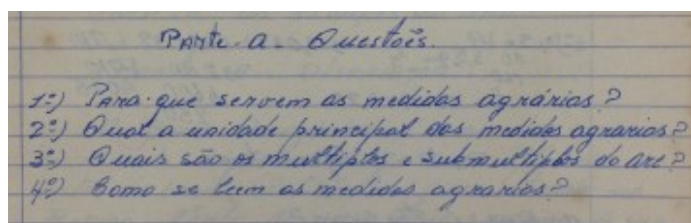 Parte. a. Questões.
1º) Para que servem as medidas agrárias?
2º) Qual a unidade principal das medidas agrarias?
3º) Quais são os multiplos e submultiplos do are?
4º) Como se leem as medidas agrarias?